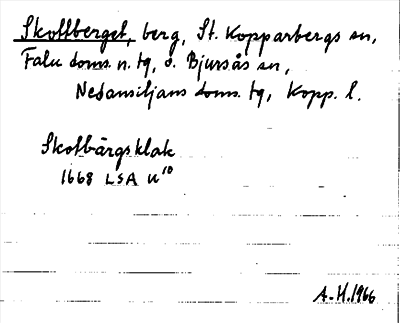 Skottberget, berg, St. Kopparbergs sn,
Falu doms. n. tg, o. Bjursås sn,
Nedansiljans doms. tg, Kopp. l.
Skotbärgsklak
1668 LSA U¹⁰
A-H. 1966